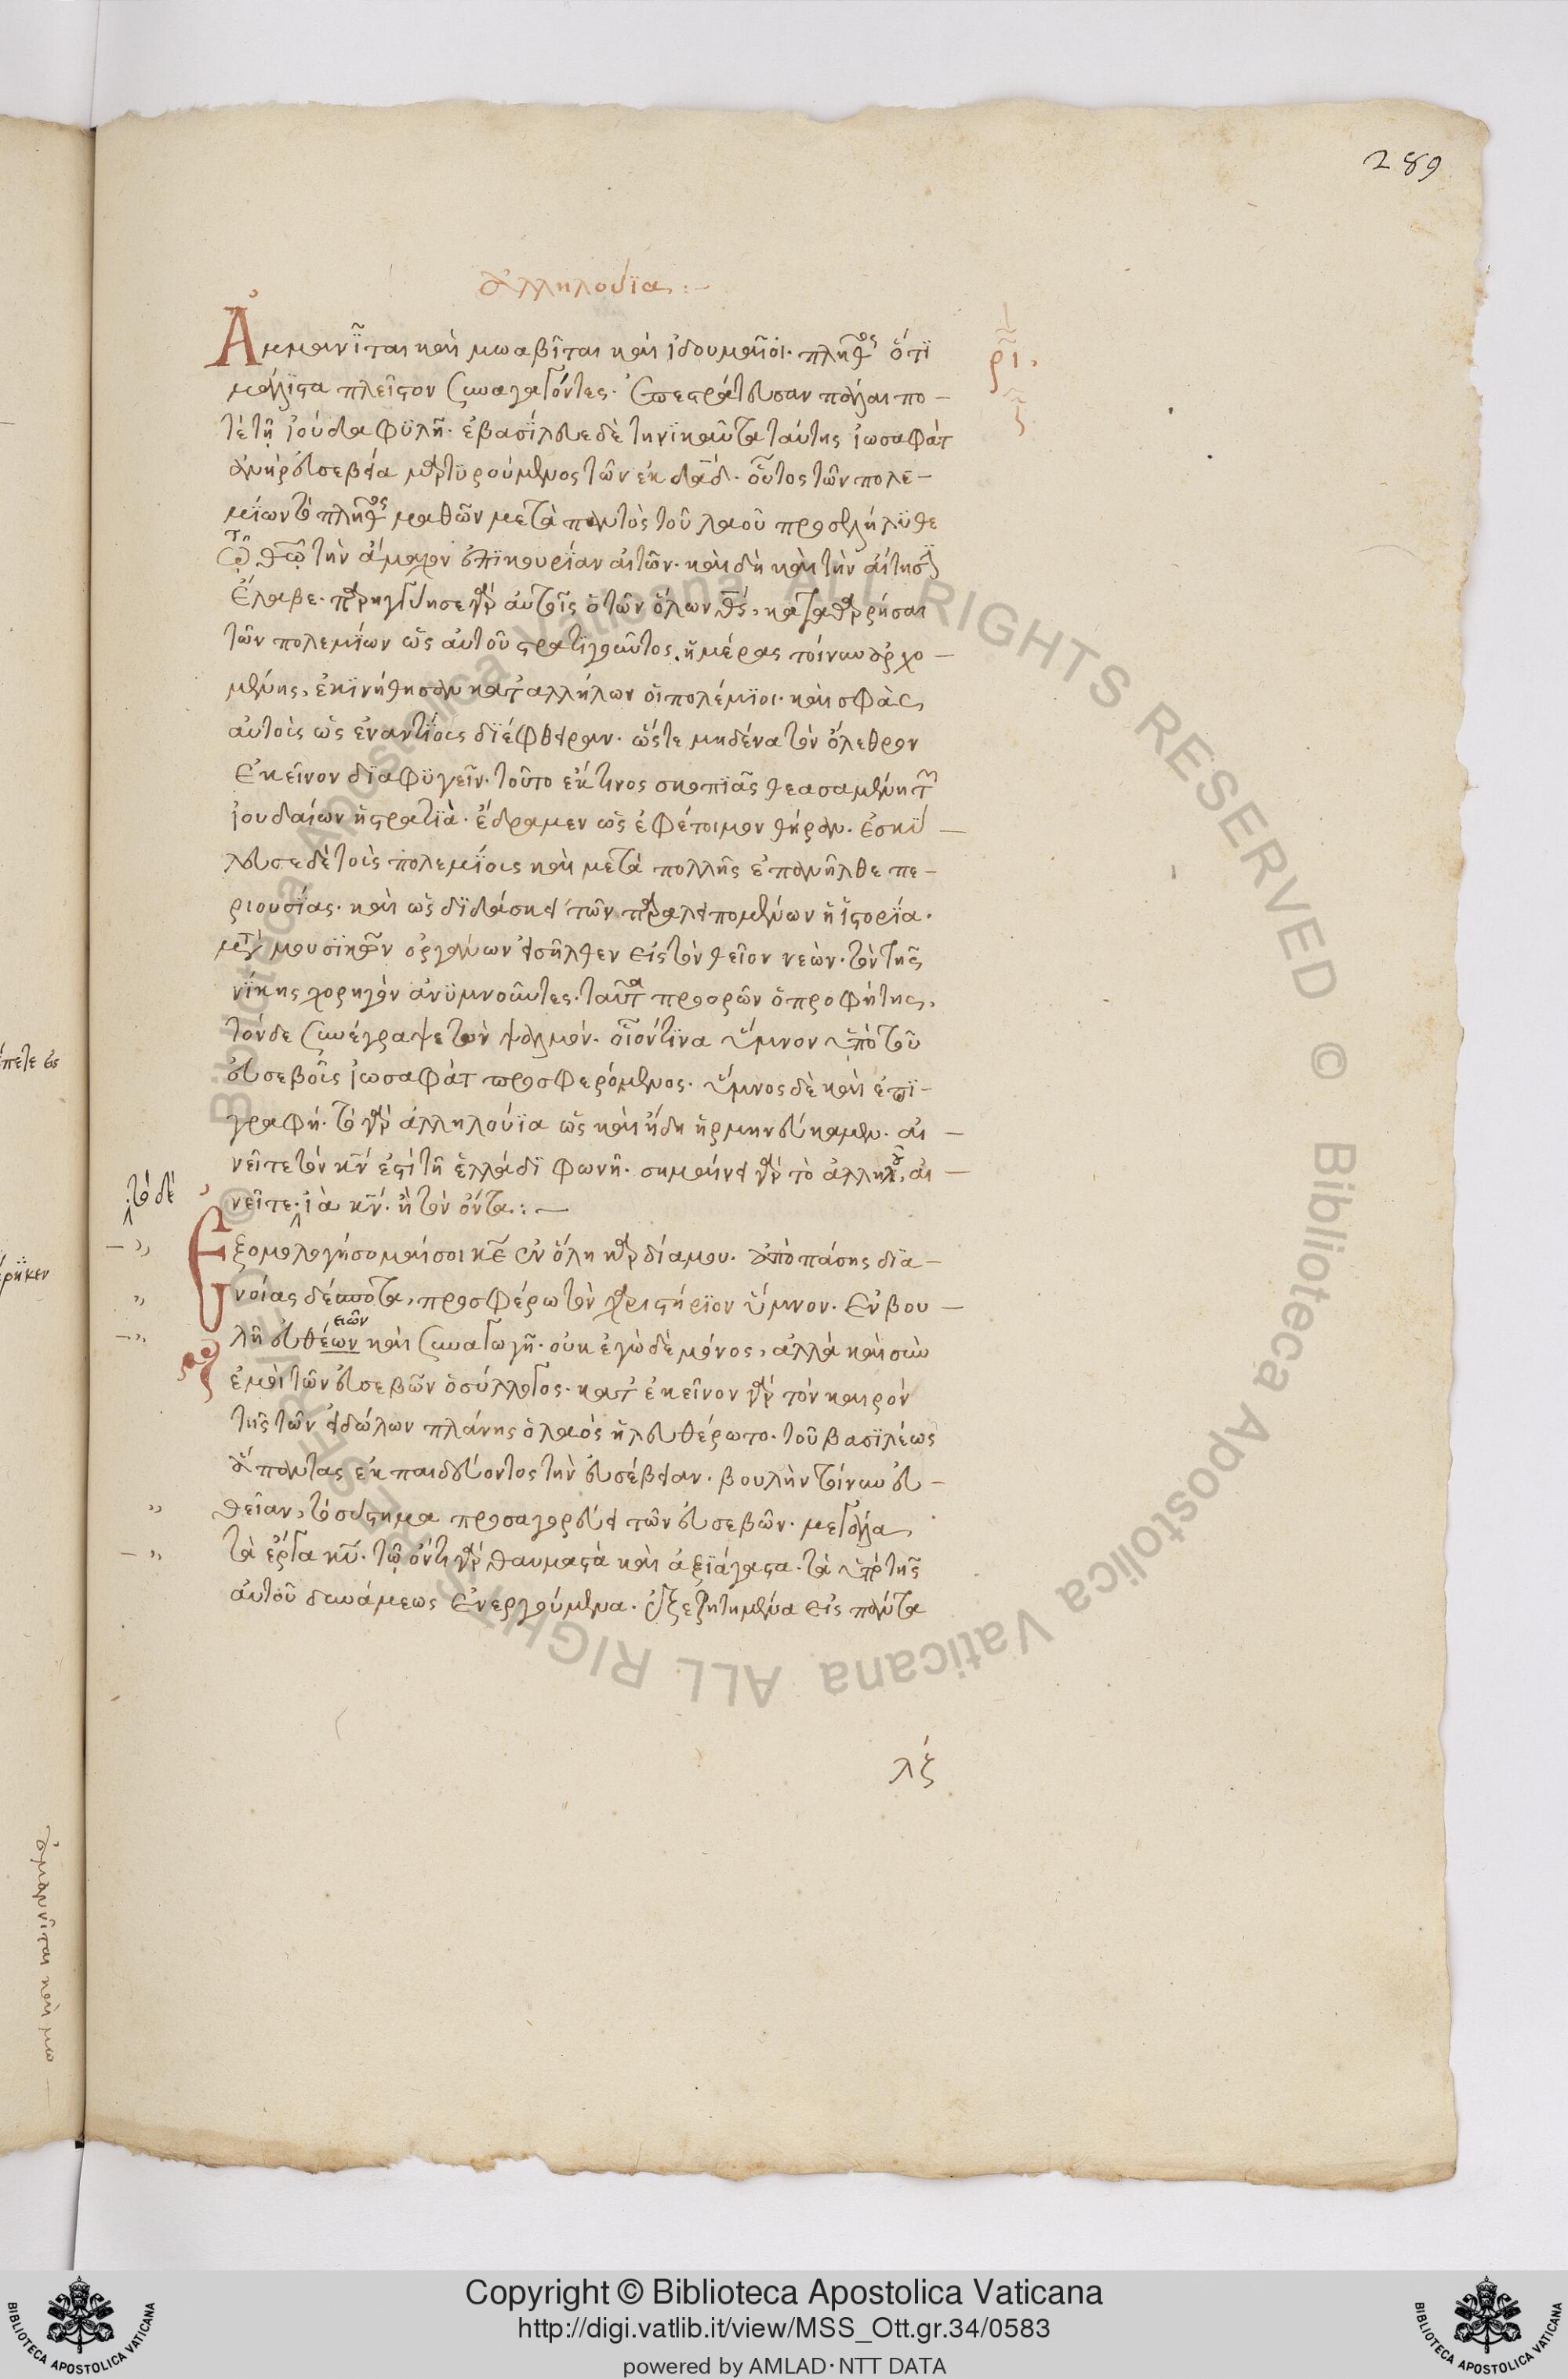 289
ἀλληλούϊα :-
Ἀμμανῖται καὶ μωαβῖται καὶ ἰδουμαῖοι· πλῆθος ὅτι
μάλιστα πλεῖστον συναγαγόντες· ἐπεστράτευσαν πάλαι πο-
τὲ τῇ ἰούδα φυλῇ· ἐβασίλευε δὲ τηνικαῦτα ταύτης ἰωσαφὰτ
ἀνὴρ εὐσεβεία μαρτυρούμενος τῶν ἐκ δαδ· οὗτος τῶν πολε-
μίων τὸ πλῆθος μαθῶν μετὰ παντὸς τοῦ λαοῦ προσελήλυθε
τῷ θῶ τὴν ἄμαχον ἐπικουρίαν αἰτῶν· καὶ δὴ καὶ τὴν αἴτησιν
ἔλαβε· παρηγγύησε γὰρ αὐτοῖς ὁ τῶν ὅλων θς, καταθαρρήσαι
τῶν πολεμίων ὡς αὐτοῦ στρατηγοῦντος. ἡμέρας τοίνυν ἀρχο-
μένης, ἐκινήθησαν κατ αλλήλων οἱ πολέμιοι· καὶ σφὰς
αὐτοὶς ὡς ἐναντίοις διέφθειραν· ὥστε μηδένα τὸν ὄλεθρον
ἐκεῖνον διαφυγεῖν· τοῦτο ἐκ τινος σκοπιᾶς θεασαμένη τῶν
ἰουδαίων ἡ στρατιὰ· ἔδραμεν ὡς ἐφ ἑτοιμον θήραν· ἐσκύ-
λευσε δὲ τοὶς πολεμίοις καὶ μετὰ πολλῆς ἐπανῆλθε πε-
ριουσίας· καὶ ὡς διδάσκει τῶν παραλειπομένων ἡ ἱστορία·
μετὰ μουσικῶν ὀργάνων εἰσῆλθεν εἰς τὸν θεῖον νεὼν· τὸν τῆς
νίκης χορηγὸν ἀνυμνοῦντες· ταῦτα προορῶν ὁ προφήτης,
τόνδε συνέγραψε τὸν ψαλμόν· οἷόν τινα ὕμνον ὑπὸ τοῦ
εὐσεβοῖς ἰωσαφὰτ προσφερόμενος· ὕμνος δὲ καὶ ἐπι-
γραφή· τὸ γὰρ ἀλληλούϊα ὡς καὶ ἤδη ἡρμηνεύκαμεν· αἰ-
νεῖτε τὸν κν ἐστὶ τῇ ἑλλάδι φωνῆ· σημαίνει γὰρ τὸ ἀλληλοῦ, αἰ-
τὸ δὲ
νεῖτε· ἰὰ κν· ἢ τὸν ὄντα :-
Ἐξομολογήσομαί σοι κε ἐν ὅλη καρδία μου· ἀπὸ πάσης δια-
νοίας δέσποτα, προσφέρω τὸν χαριστήριον ὕμνον· Ἐν βου-
ειῶν
λῆ εὐθέων καὶ συναγωγῆ· οὐκ ἐγὼ δὲ μόνος, ἀλλὰ καὶ σὺν
ἐμοὶ τῶν εὐσεβῶν ὁ σύλλογος· κατ ἐκεῖνον γὰρ τὸν καιρὸν
τῆς τῶν εἰδώλων πλάνης ὁ λαὸς ἠλευθέρωτο· τοῦ βασιλέως
ἅπαντας ἐκπαιδεύοντος τὴν εὐσέβειαν· βουλὴν τοίνυν εὐ-
θεῖαν, τὸ σύστημα προσαγορεύει τῶν εὐσεβῶν· μεγάλα
τὰ ἔργα κυ· τῷ ὄντι γὰρ θαυμαστὰ καὶ ἀξιάγαστα· τὰ ὑπὸ τῆς
αὐτοῦ δυνάμεως ἐνεργούμενα· ἐξεζητημένα εἰς πάντα
λζ
Copyright © Biblioteca Apostolica Vaticana
http://digi.vatlib.it/view/MSS_Ott.gr.34/0583
powered by AMLAD·NTT DATA
BIBLIOTECA APOSTOLICA VATICANA
BIBLIOTECA APOSTOLICA VATICANA